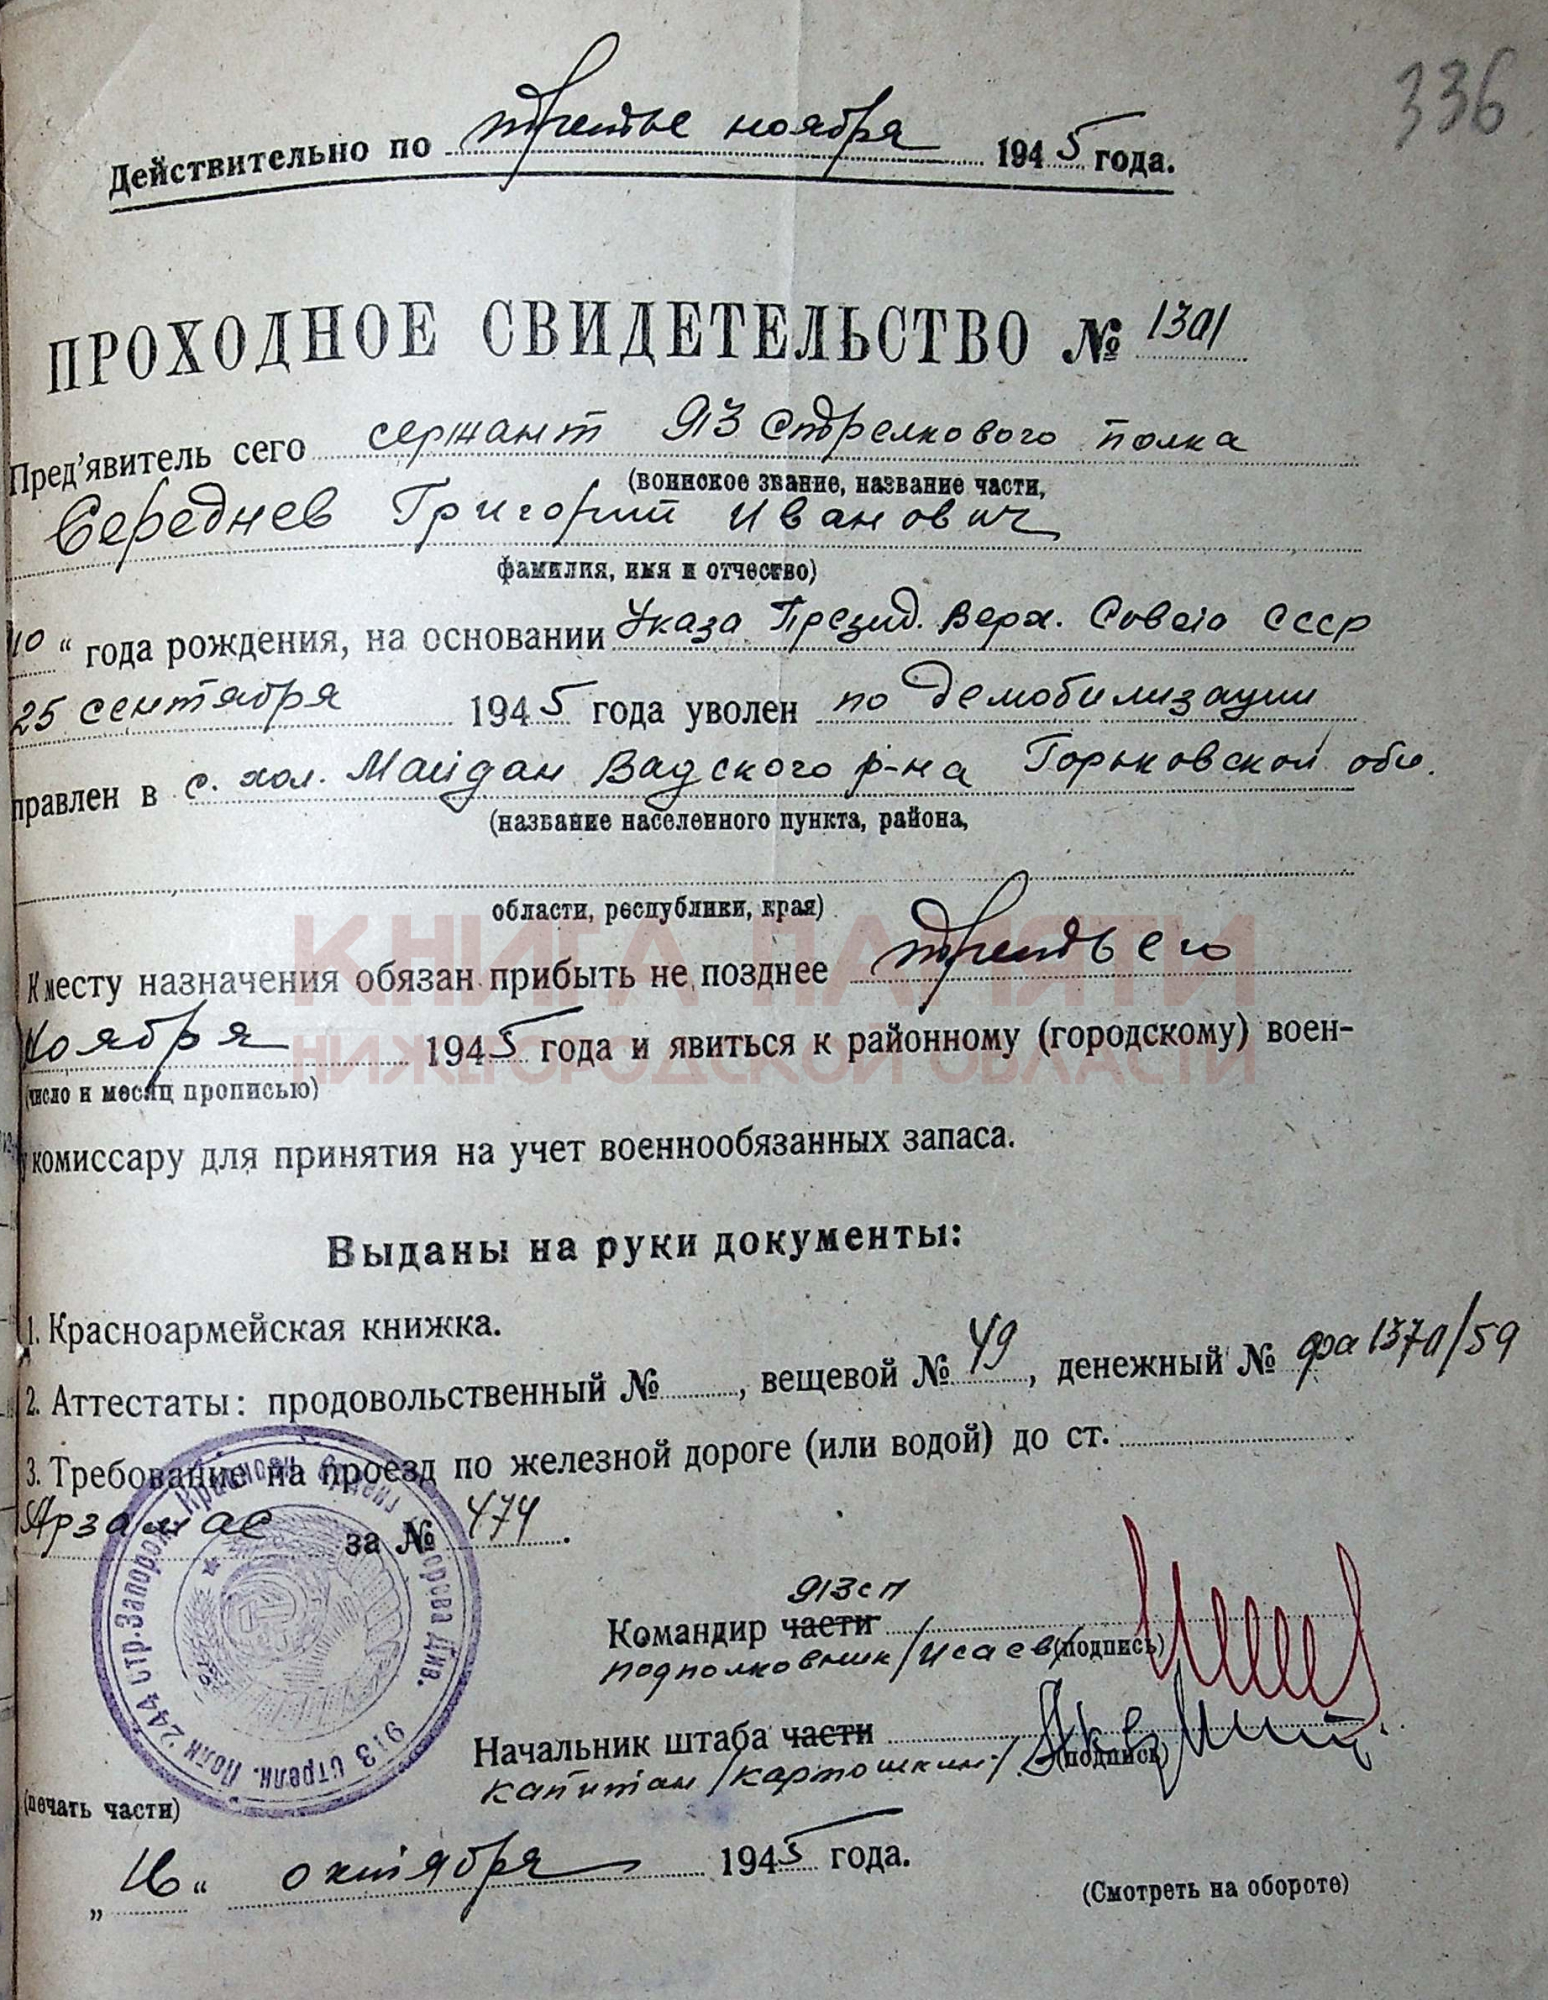 336
Действительно по третье ноября 1945 года.
ПРОХОДНОЕ СВИДЕТЕЛЬСТВО № 1301
Пред'явитель сего сержант 913 стрелкового полка
(воинское звание, название части,
Середнев Григорий Иванович
фамилия, имя и отчество)
10 “ года рождения, на основании Указа Презид. Верх. Совета СССР
25 сентября 1945 года уволен по демобилизации
правлен в с. хол. Майдан Вадского р-на Горьковской обл.
(название населенного пункта, района,
области, республики, края)
КНИГА ПАМЯТИ
НИЖЕГОРОДСКОЙ ОБЛАСТИ
К месту назначения обязан прибыть не позднее третьего
ноября 1945 года и явиться к районному (городскому) воен-
(число и месяц прописью)
комиссару для принятия на учет военнообязанных запаса.
Выданы на руки документы:
1. Красноармейская книжка.
2. Аттестаты: продовольственный № , вещевой № 49, денежный № фа 1370/59
3. Требование на проезд по железной дороге (или водой) до ст.
Арзамас за № 474.
913 сп
Командир части (подпись)
подполковник /Исаев/
Начальник штаба части (подпись)
капитан /Картошкин/
913 Стрелк. Полк 244 Стр. Запорож. Краснозн. Ордена Див.
(печать части)
„ 16 “ октября 1945 года.
(Смотреть на обороте)